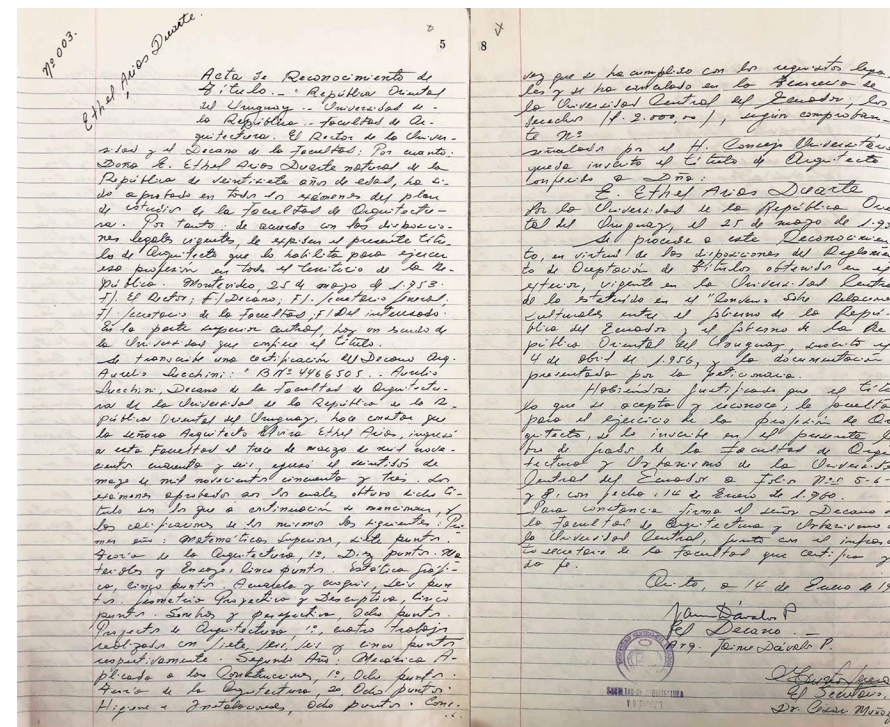 Nº 003.
Ethel Arias Duarte.
5
Acta de Reconocimiento de
Título. - "República Oriental
del Uruguay. - Universidad de
la República. - Facultad de Ar-
quitectura. El Rector de la Univer-
sidad y el Decano de la Facultad: Por cuanto:
Doña E. Ethel Arias Duarte natural de la
República de veintisiete años de edad, ha si-
do aprobada en todos los exámenes del plan
de estudios de la Facultad de Arquitectu-
ra. Por tanto: de acuerdo con las disposicio-
nes legales vigentes, le expiden el presente títu-
lo de Arquitecto que lo habilita para ejercer
esa profesión en todo el territorio de la Re-
pública. Montevideo, 25 de mayo de 1.953.
f/. El Rector; f/ Decano; f/. Secretario General;
f/. Secretario de la Facultad; f/ Del interesado.
En la parte superior central, hay un escudo de
la Universidad que confiere el título.
Se transcribe una certificación del Decano Arq.
Aurelio Lucchini: "B Nº 4466505. - Aurelio
Lucchini, Decano de la Facultad de Arquitectu-
ra de la Universidad de la República de la Re-
pública Oriental del Uruguay, hace constar que
la señora Arquitecto Elvira Ethel Arias, ingresó
a esta Facultad el trece de marzo de mil nove-
cientos cuarenta y seis, egresó el veintidós de
mayo de mil novecientos cincuenta y tres. Los
exámenes aprobados con los cuales obtuvo dicho tí-
tulo son los que a continuación se mencionan, y
las calificaciones de los mismos las siguientes: Pri-
mer año: Matemáticas Superior, siete puntos.
Teoría de la Arquitectura, 1º, Diez puntos. Ma-
teriales y Ensayo, Cinco puntos. Estática Gráfi-
ca, cinco puntos. Acuarela y croquis, seis pun-
tos. Geometría Proyectiva y Descriptiva, Cinco
puntos. Sombras y perspectiva, Ocho puntos.
Proyecto de Arquitectura, 1º, cuatro trabajos
realizados con siete, seis, seis y cinco puntos
respectivamente. Segundo Año: Mecánica A-
plicada a las Construcciones, 1º, Ocho puntos.
Teoría de la Arquitectura, 2º, Ocho puntos.
Higiene e Instalaciones, Ocho puntos. Conc.
8
vez que se ha cumplido con los requisitos lega-
les y se ha cancelado en la Tesorería de
la Universidad Central del Ecuador, los
derechos /$. 2.000,oo/, según comproban-
te Nº
señalados por el H. Consejo Universitario
queda inscrito el título de Arquitecto
conferido a Dña:
E. Ethel Arias Duarte
Por la Universidad de la República Orien
tal del Uruguay, el 25 de mayo de 1.95
Se procede a este Reconocimien
to, en virtud de las disposiciones del Reglamen
to de Aceptación de Títulos obtenidos en el
exterior, vigente en la Universidad Central
de lo estatuido en el "Convenio Sobre Relaciones
Culturales entre el Gobierno de la Repú-
blica del Ecuador y el Gobierno de la Re
pública Oriental del Uruguay, suscrito el
4 de abril de 1.956, y la documentación
presentada por la peticionaria.
Habiéndose justificado que el títu
lo que se acepta y reconoce, la faculta
para el ejercicio de la profesión de Ar
quitecto, se lo inscribe en el presente li
bro de grado de la Facultad de Arqui
tectura y Urbanismo de la Universidad
Central del Ecuador a folio Nºs 5-6-
y 8, con fecha, 14 de Enero de 1.960.
Para constancia firma el señor Decano de
la Facultad de Arquitectura y Urbanismo
la Universidad Central, junto con el infras
to secretario de la Facultad que certifica y
da fe.
Quito, a 14 de Enero de 19
Jaime Dávalos P
El Decano. -
Arq. Jaime Dávalos P.
FACULTAD DE ARQUITECTURA
El Secretario,
Dr. César Muñoz